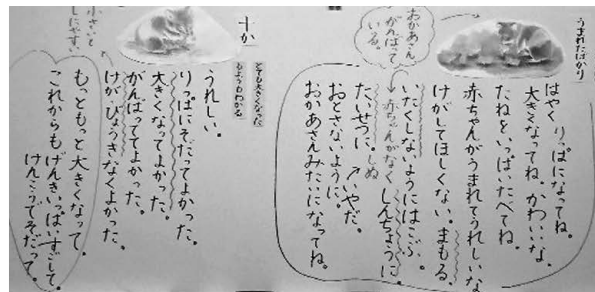 うまれたばかり
おかあさん
がんばって
いる。
はやく りっぱになってね。
大きくなってね。かわいいな。
たねをいっぱいたべてね。
赤ちゃんがうまれてうれしいな
けがしてほしくない。まもる。
いたくしないようにはこぶ。
赤ちゃんがなく しんちょうに。
たいせつに。しぬ
いやだ。
おとさないように。
おかあさんみたいになってね。
十か
とても大きくなった
もようもわかる
小さいと
しにやすい
うれしい。
りっぱにそだってよかった。
大きくなってよかった。
がんばっててよかった。
けが・びょうきなくよかった。
もっともっと 大きくなって。
これからも げんきいっぱいすごして。
けんこうでそだって。